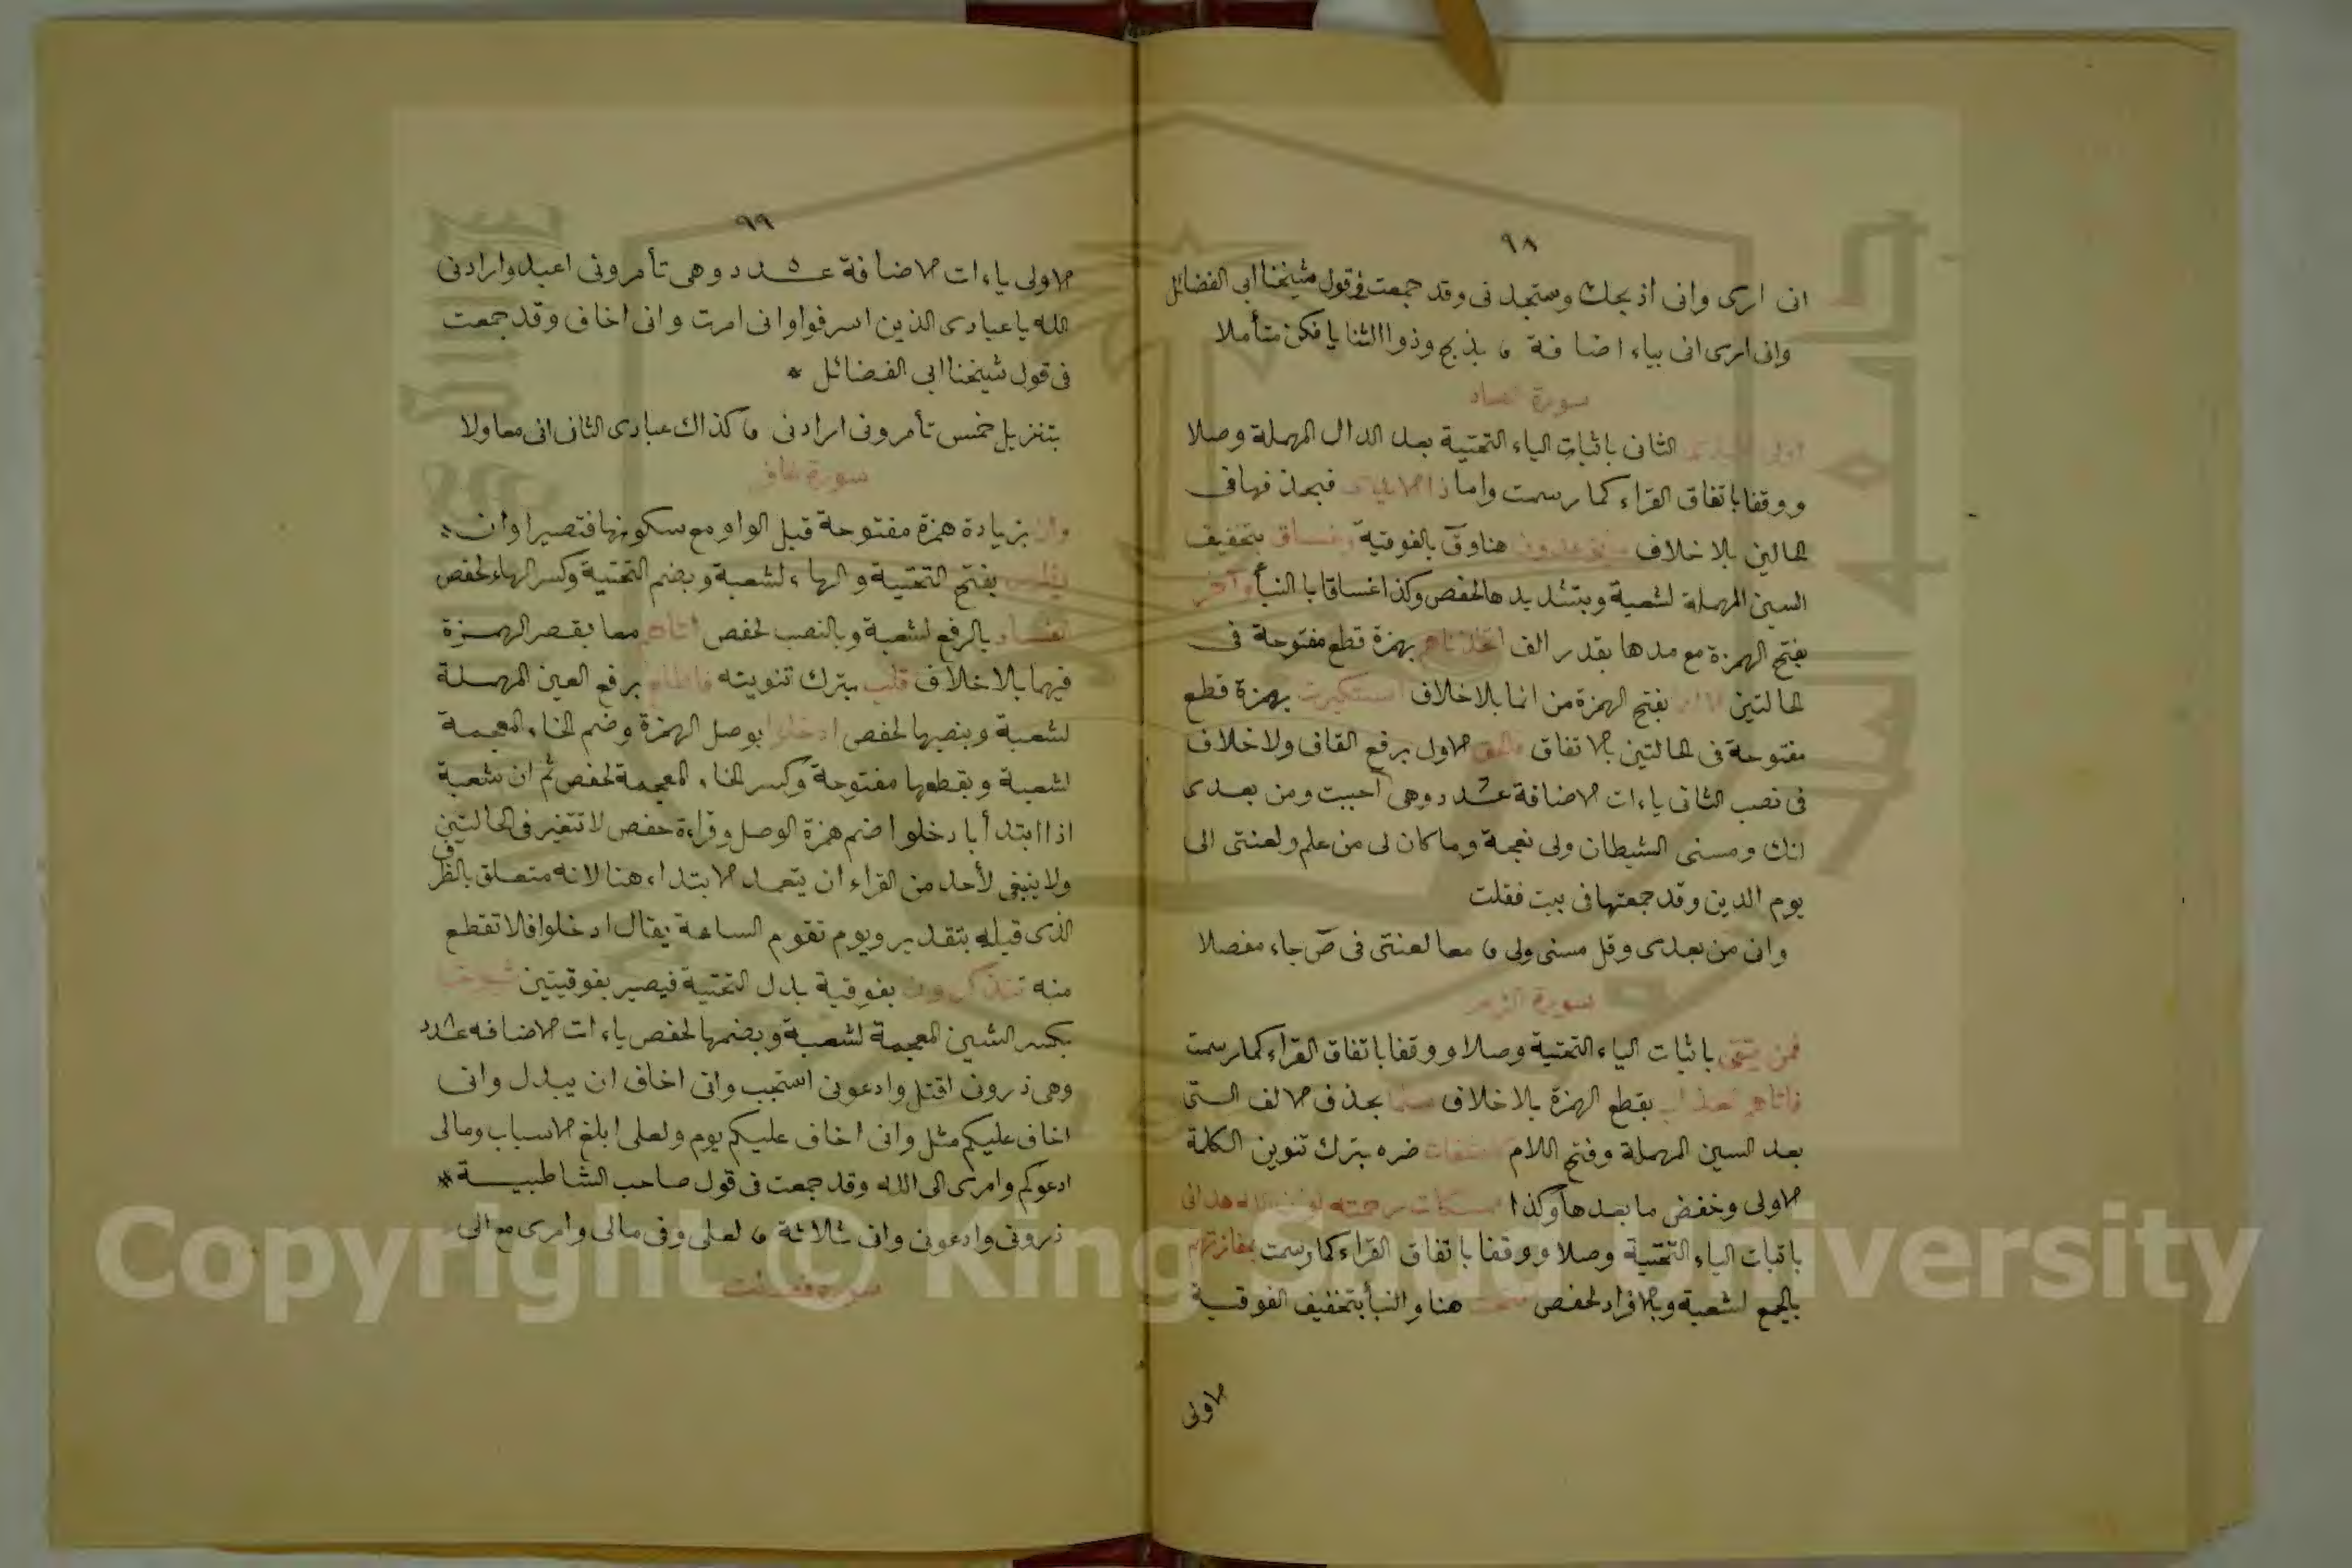 ٩٨
انى ارى وانى اذبحك وستجدنى وقد جمعت فى قول شيخنا ابى الفضائل
وانى ارى انى بياء اضافة ۞ بذبح وذو الثنايا فكن متأملا
سورة الصاد
اولى الايدى الثانى باثبات الياء التحتية بعد الدال المهملة وصلا
ووقفا باتفاق القراء كما رسمت واما ذا الايدى فبحذفها فى
الحالين بلا خلاف هنا وق بالفوقية وغساق بتخفيف
السين المهملة لشعبة وبتشديدها لحفص وكذا غساقا بالنبأ وآخر
بفتح الهمزة مع مدها بقدر الف اتخذناهم بهمزة قطع مفتوحة فى
الحالتين بفتح الهمزة من انما بلا خلاف استكبرت بهمزة قطع
مفتوحة فى الحالتين بالاتفاق فالحق الاول برفع القاف ولا خلاف
فى نصب الثانى ياءات الاضافة عدد وهى أحببت ومن بعدى
انك ومسنى الشيطان ولى نعجة وما كان لى من علم ولعنتى الى
يوم الدين وقد جمعتها فى بيت فقلت
وانى من بعدى وقل مسنى ولى ۞ معا لعنتى فى صٓ جاء مفصلا
سورة الزمر
فمن يتقى باثبات الياء التحتية وصلا ووقفا باتفاق القراء كما رسمت
فاتاهم العذاب بقطع الهمزة بلا خلاف سلما بحذف الالف التى
بعد السين المهملة وفتح اللام كاشفات ضره بترك تنوين الكلمة
الاولى وخفض ما بعدها وكذا ممسكات رحمته لو ان الله هدانى
باثبات الياء التحتية وصلا ووقفا باتفاق القراء كما رسمت بمفازتهم
بالجمع لشعبة وبالافراد لحفص فتحت هنا والنبأ بتخفيف الفوقية
الاولى
٩٩
الاولى ياءات الاضافة عدد ٥ وهى تأمرونى اعبد وارادنى
الله يا عبادى الذين اسرفوا وانى امرت وانى اخاف وقد جمعت
فى قول شيخنا ابى الفضائل *
بتنزيل خمس تأمرونى ارادنى ۞ كذاك عبادى الثان انى معا ولا
سورة غافر
وان بزيادة همزة مفتوحة قبل الواو مع سكونها فتصير اوان
يظهر بفتح التحتية والهاء لشعبة وبضم التحتية وكسر الهاء لحفص
الفساد بالرفع لشعبة وبالنصب لحفص اتاهم معا بقصر الهمزة
فيهما بلا خلاف قلب بترك تنوينه فاطلع برفع العين المهملة
لشعبة وبنصبها لحفص ادخلوا بوصل الهمزة وضم الخاء المعجمة
لشعبة وبقطعها مفتوحة وكسر الخاء المعجمة لحفص ثم ان شعبة
اذا ابتدأ بادخلوا ضم همزة الوصل وقراءة حفص لا تتغير فى الحالتين
ولا ينبغى لأحد من القراء ان يتعمد الابتداء هنا لانه متعلق بالظرف
الذى قبله بتقدير ويوم تقوم الساعة يقال ادخلوا فلا تقطع
منه تتذكرون بفوقية بدل التحتية فيصير بفوقيتين شيوخا
بكسر الشين المعجمة لشعبة وبضمها لحفص ياءات الاضافه عدد
وهى ذرونى اقتل وادعونى استجب وانى اخاف ان يبدل وانى
اخاف عليكم مثل وانى اخاف عليكم يوم ولعلى ابلغ الاسباب ومالى
ادعوكم وامرى الى الله وقد جمعت فى قول صاحب الشاطبية *
ذرونى وادعونى وانى ثلاثة ۞ لعلى وفى مالى وامرى مع الى
سورة فصلت
Copyright © King Saud University